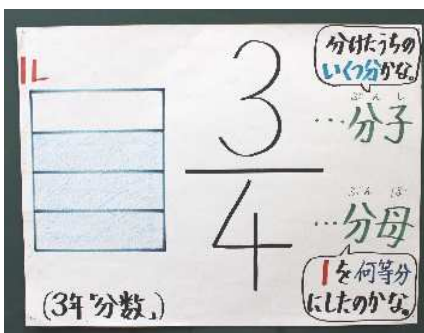 1L
3
4
分けたうちの
いくつ分かな。
ぶんし
…分子
ぶんぼ
…分母
1を何等分
にしたのかな。
(3年「分数」)